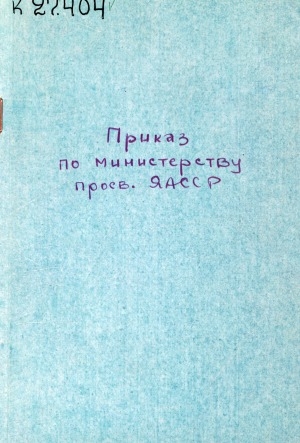 К 27.404
Приказ
по министерству
просв. ЯАССР